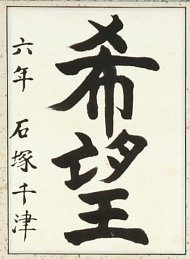 希望
六年 石塚千津